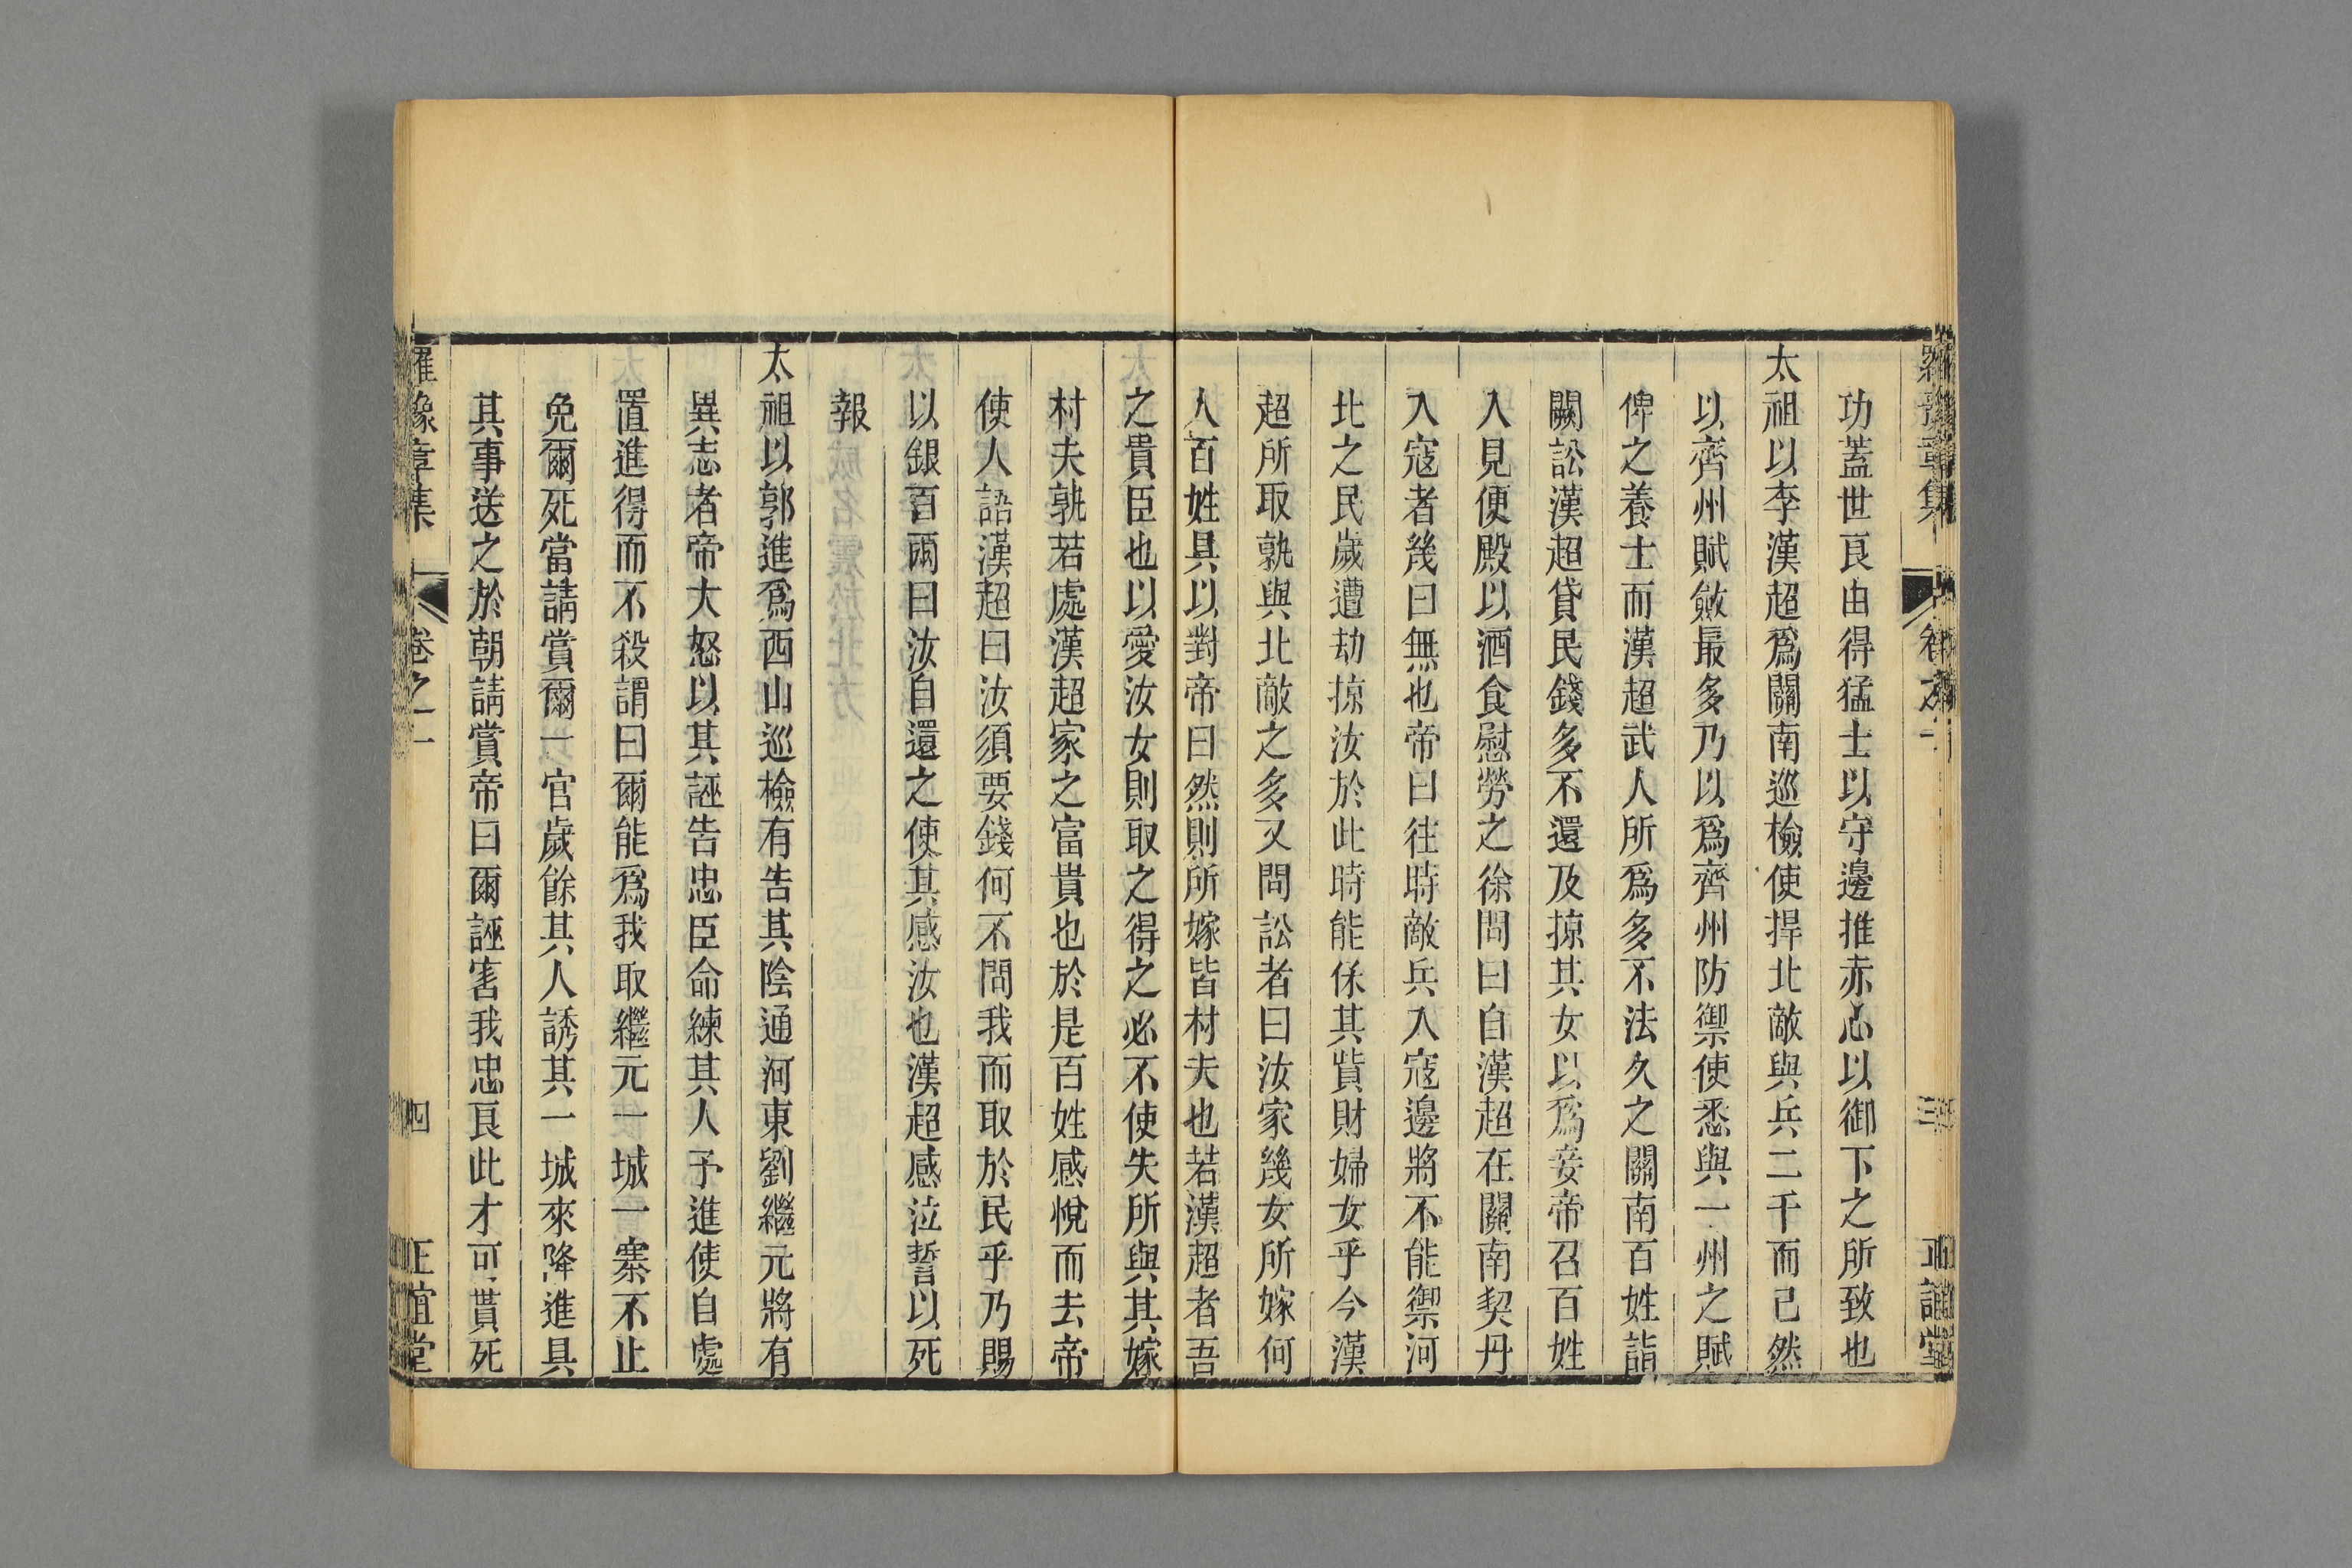 羅豫章集 卷之一 三 正誼堂
功蓋世良由得猛士以守邊推赤心以御下之所致也
太祖以李漢超爲關南巡檢使捍北敵與兵二千而已然
以齊州賦斂最多乃以爲齊州防禦使悉與一州之賦
俾之養士而漢超武人所爲多不法久之關南百姓詣
闕訟漢超貸民錢多不還及掠其女以爲妾帝召百姓
入見便殿以酒食慰勞之徐問曰自漢超在關南契丹
入寇者幾曰無也帝曰往時敵兵入寇邊將不能禦河
北之民歲遭劫掠汝於此時能保其貲財婦女乎今漢
超所取孰與北敵之多又問訟者曰汝家幾女所嫁何
人百姓具以對帝曰然則所嫁皆村夫也若漢超者吾
之貴臣也以愛汝女則取之得之必不使失所與其嫁
村夫孰若處漢超家之富貴也於是百姓感悅而去帝
使人語漢超曰汝須要錢何不問我而取於民乎乃賜
以銀百兩曰汝自還之使其感汝也漢超感泣誓以死
報
太祖以郭進爲西山巡檢有告其陰通河東劉繼元將有
異志者帝大怒以其誣告忠臣命縛其人予進使自處
置進得而不殺謂曰爾能爲我取繼元一城一寨不止
免爾死當請賞爾一官歲餘其人誘其一城來降進具
其事送之於朝請賞帝曰爾誣害我忠良此才可貰死
羅豫章集 卷之一 四 正誼堂